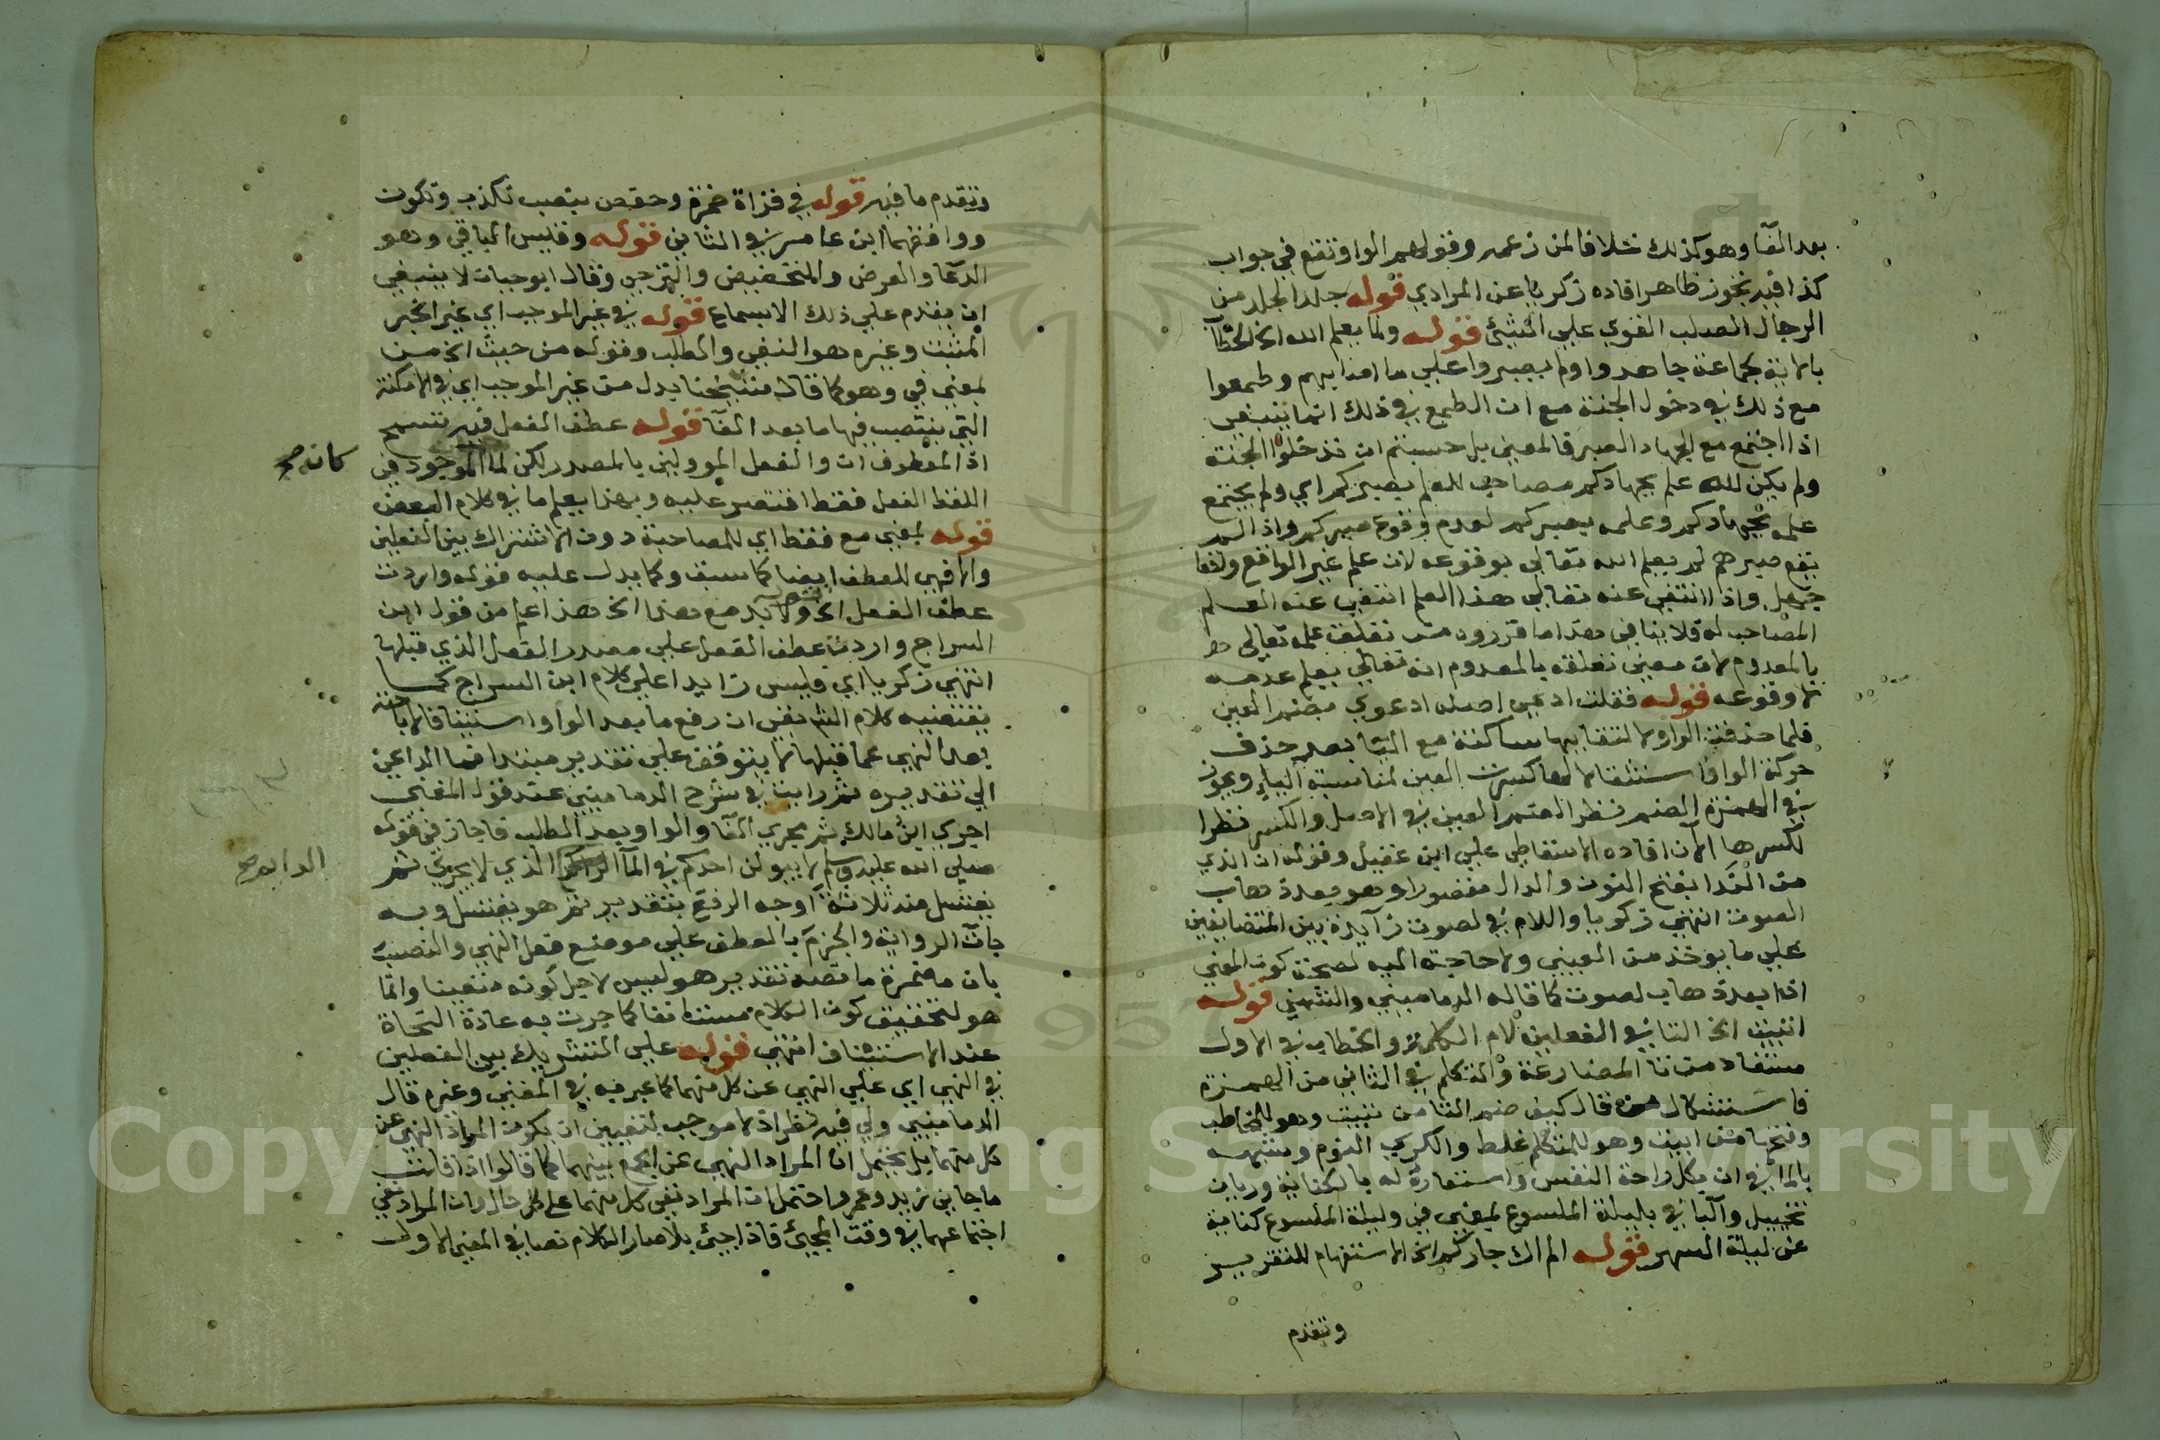 بعد الفآ وهو كذلك خلافا لمن زعمه وقولهم الواو تقع في جواب
كذا فيه تجوز ظاهر افاده زكريا عن المرادي قوله جلد الجلد من
الرجال الصلب القوي على الشيئ قوله ولما يعلم الله الخ الخطاب
بالاية لجماعة جاهدوا ولم يصبروا على ما اصابهم وطمعوا
مع ذلك في دخول الجنة مع ان الطمع في ذلك انما ينبغي
اذا اجتمع مع الجهاد الصبر فالمعنى بل حسبتم ان تدخلوا الجنة
ولم يكن لله علم بجهادكم مصاحب للعلم بصبركم اي ولم يجتمع
علمه بجهادكم وعلمه بصبركم لعدم وقوع صبركم واذا لم
يقع صبرهم لم يعلم الله تعالى بوقوعه لان علم غير الواقع واقعا
جهل واذا انتفى عنه تعالى هذا العلم انتفى عنه العلم
المصاحب له فلا ينافي هذا ما قرروه من تعلق علمه تعالى
بالمعدوم لان معنى تعلقه بالمعدوم انه تعالى يعلم عدمه
لا وقوعه قوله فقلت ادعي اصله ادعوي بضم العين
فلما حذفت الواو لالتقايها ساكنة مع اليا بعد حذف
حركة الواو استثقالا لها كسرت العين لمناسبة الياء ويجوز
في الهمزة الضم نظرا لضم العين في الاصل والكسر نظرا
لكسرها الان افاده الاسقاطي على ابن عقيل وقوله اندي
من الندا بفتح النون والدال مقصورا وهو بعد ذهاب
الصوت انتهى زكريا واللام في لصوت زآيدة بين المتضايفين
على ما يوخذ من العيني ولا حاجة اليه لصحة كون المعنى
اذا بعد ذهاب لصوت كما قاله الدماميني والشمني قوله
اتبيت الخ التا في الفعلين لام الكلمة والخطاب في الاول
مستفاد من تا المضارعة والتكلم في الثاني من الهمزة
فاستشكال من قال كيف ضم التا من تبيت وهو للمخاطب
وفتحها من ابيت وهو للمتكلم غلط والكري النوم وشبهه
بالما في ان بكل راحة النفس واستعارة له بالكناية وريان
تخييل والبا في بليلة الملسوع بمعنى في وليلة الملسوع كناية
عن ليلة السهر قوله الم اك جاركم الخ الاستفهام للتقرير
وتقدم
وتقدم ما فيه قوله في قراة حمزة وحفص بنصب نكذب ونكون
ووافقهما ابن عامر في الثاني قوله وقيس الباقي وهو
الدعا والعرض والتحضيض والترجي وقال ابو حيان لا ينبغي
ان يقدم على ذلك الا بسماع قوله في غير الموجب اي غير الخبر
المثبت وغيره هو النفي والطلب وقوله من حيث الخ من
بمعنى في وهو كما قال شيخنا بدل من غير الموجب اي في الامكنة
التي ينتصب فيها ما بعد الفآ قوله عطف الفعل فيه تسمح
اذ المعطوف ان والفعل الموولين بالمصدر لكن لما الموجود في
كانه صح
اللفظ الفعل فقط اقتصر عليه وبهذا يعلم ما في كلام البعض
قوله بمعنى مع فقط اي للمصاحبة دون الاشتراك بين الفعلين
والا فهي للعطف ايضا كما سبق وكما يدل عليه قوله واردت
عطف الفعل الخ ولا بد مع هذا الخ هذا اعلم من قول ابن
السراج واردت عطف الفعل على مصدر الفعل الذي قبلها
انتهى زكريا اي وليس زايدا على كلام ابن السراج كما
يقتضيه كلام الش بقى ان رفع ما بعد الواو استينافا لاباحته
بعد النهي عما قبلها لا يتوقف على تقدير مبتدا فما الداعي
الى تقديره ثم رايت في شرح الدماميني عند قول المغني
اجرى ابن مالك ثم مجرى الفآ والواو بعد الطلب فاجاز في قوله
صلى الله عليه وسلم لا يبولن احدكم في المآ الذي لا يجري ثم
الدايم صح
يغتسل منه ثلاثة آوجه الرفع بتقدير ثم هو يغتسل وبه
جآت الرواية والجزم بالعطف على موضع فعل النهي والنصب
بان مضمرة ما نصه تقدير هو ليس لاجل كونه متعينا وانما
هو لتحقيق كون الكلام مستانفا كما جرت به عادة النحاة
عند الاستيناف انتهى قوله على التشريك بين الفعلين
في النهي اي على النهي عن كل منهما كما عبر فيه في المغني وغيره قال
الدماميني ولي فيه نظر اذ لا موجب لتعيين ان يكون المراد النهي عن
كل منهما بل يحتمل ان المراد النهي عن الجمع بينهما كما قالوا اذا قلت
ما جاني زيد وعمرو احتمل ان المراد نفي كل منهما على كل حال وان المراد نفي
اجتماعهما في وقت المجيئ فاذا جيئ بلا صار الكلام نصا في المعنى الاول
Copyright © King Saud University
1957